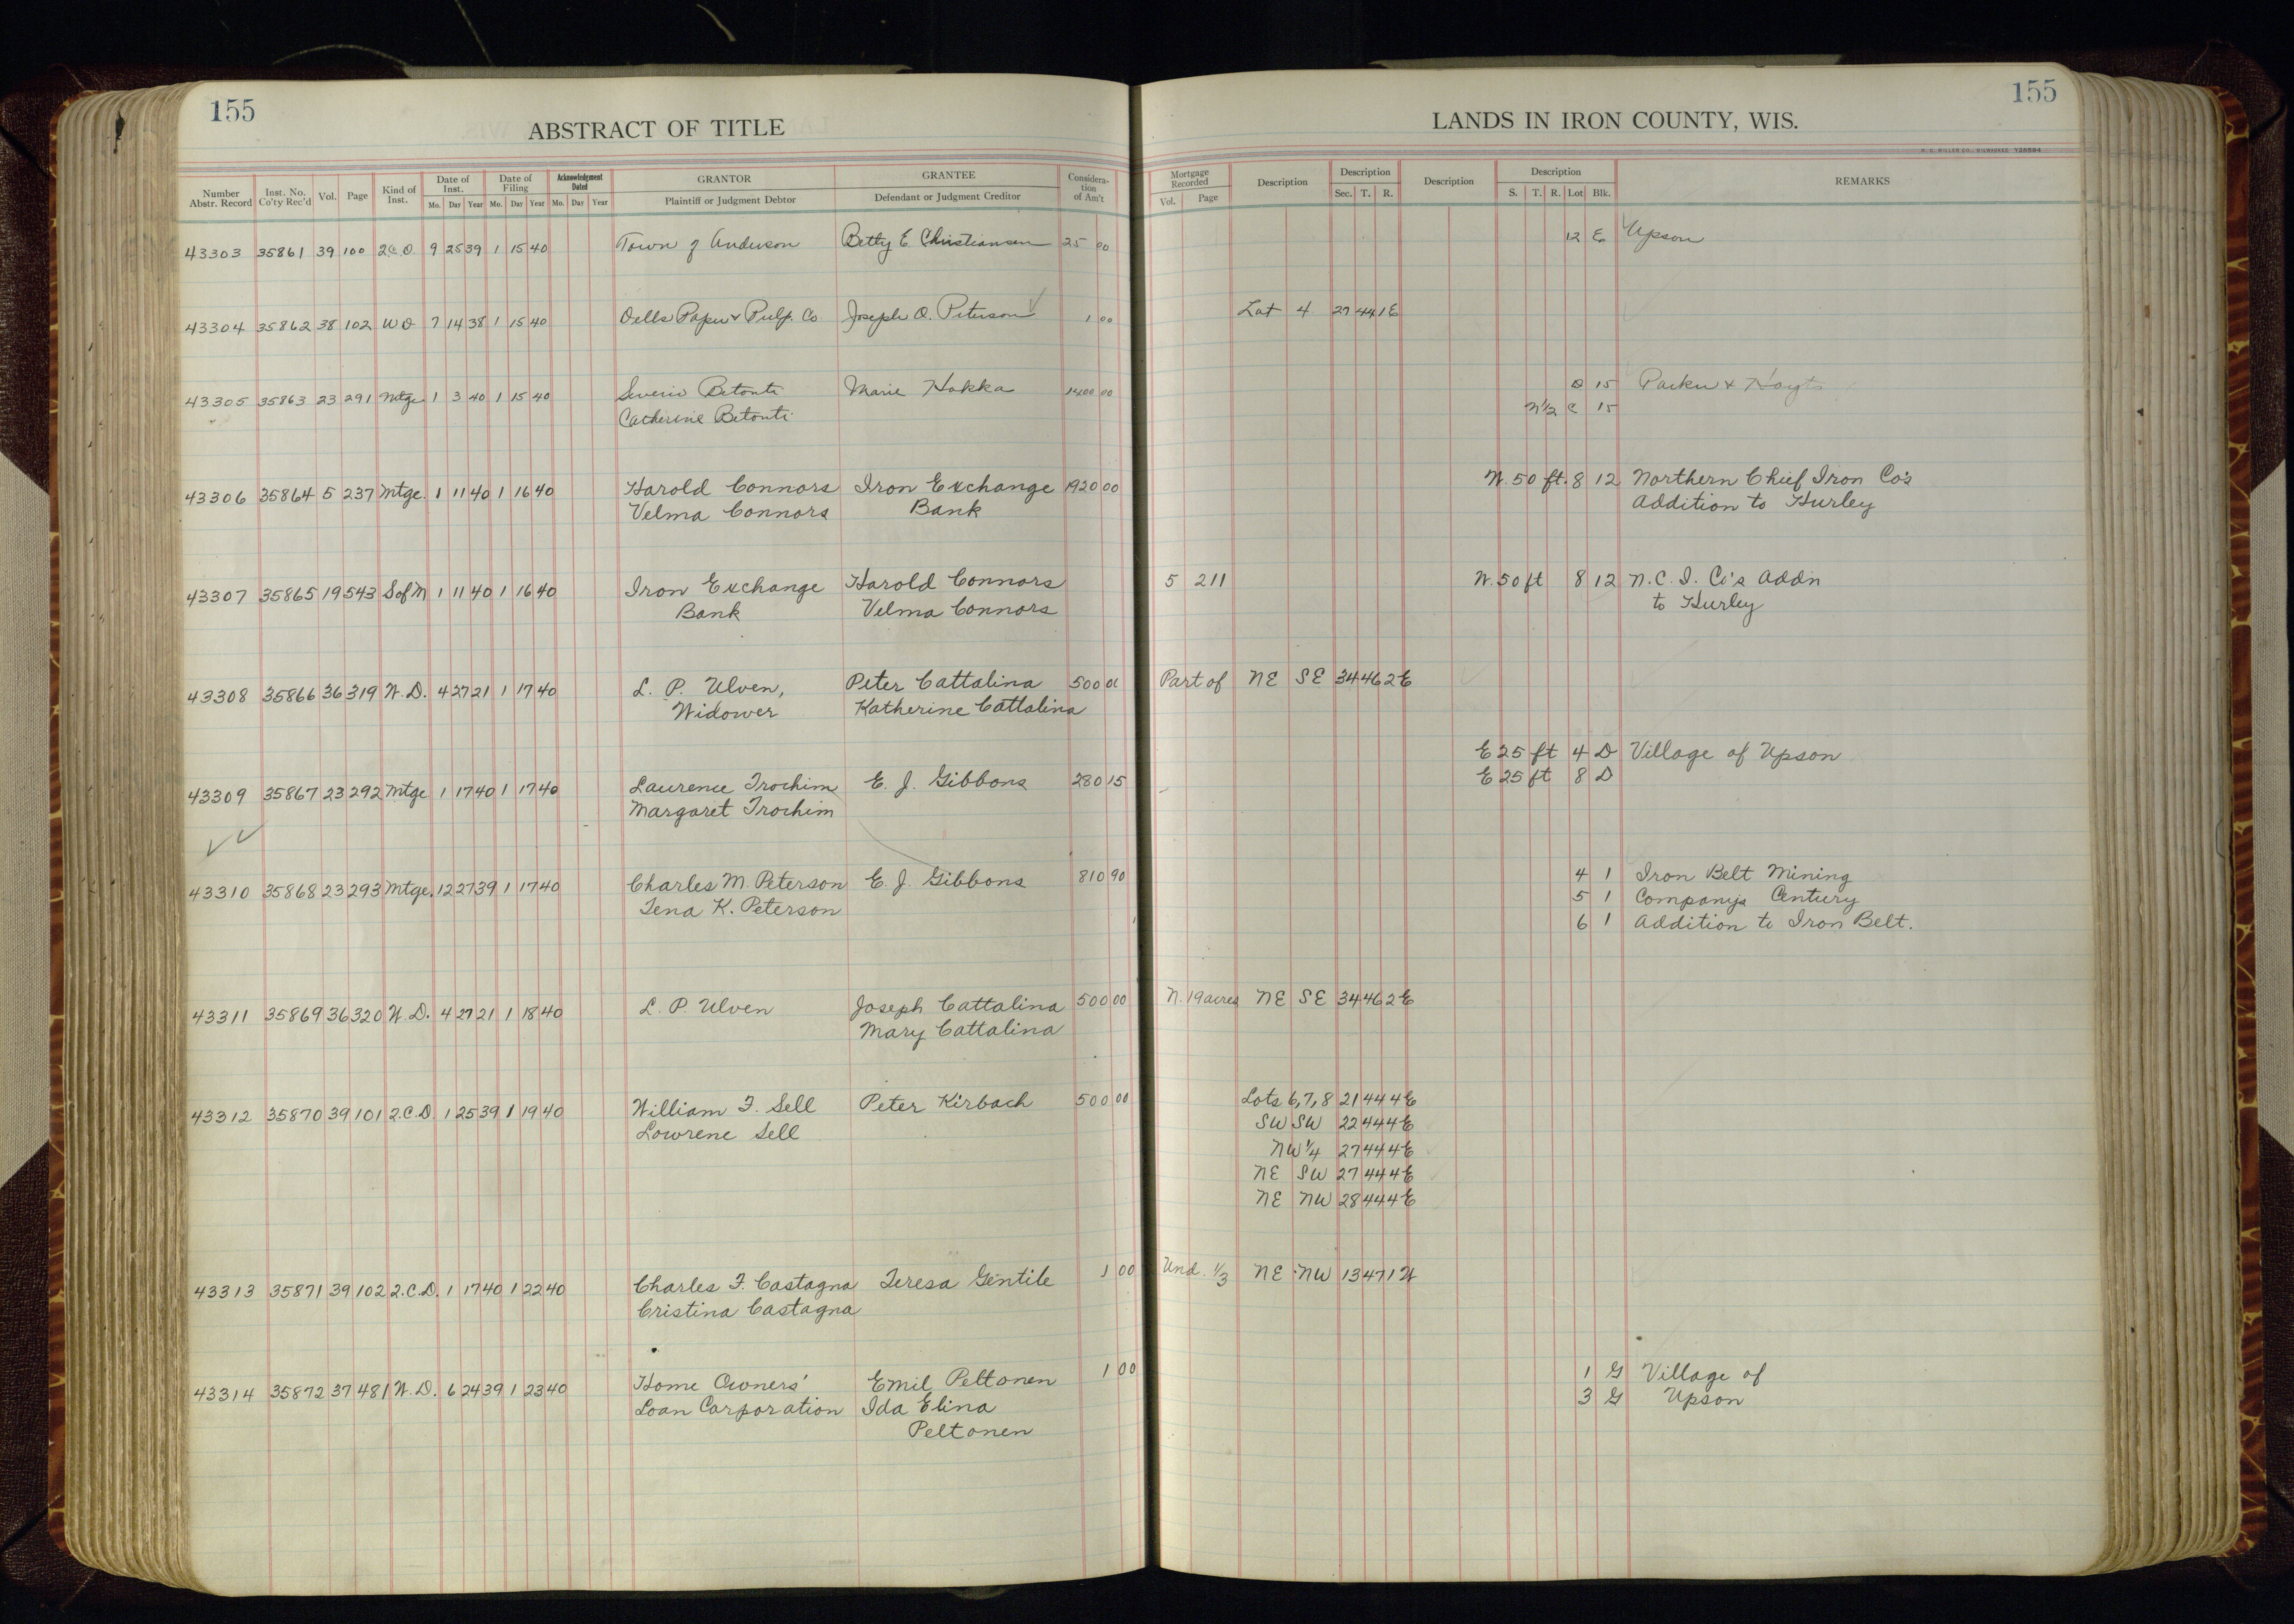 155
ABSTRACT OF TITLE
Number Abstr. Record Inst. No. Co'ty Rec'd Vol. Page Kind of Inst. Date of Inst. Mo. Day Year Date of Filing Mo. Day Year Acknowledgment Dated Mo. Day Year GRANTOR Plaintiff or Judgment Debtor GRANTEE Defendant or Judgment Creditor Considera-tion of Am't
155
LANDS IN IRON COUNTY, WIS.
H. C. MILLER CO., MILWAUKEE Y26584
Mortgage Recorded Vol. Page Description Description Sec. T. R. Description Description S. T. R. Lot Blk. REMARKS
43303 35861 39 100 2 C D 9 25 39 1 15 40 Town of Anderson Betty E. Christiansen 25 00 12 E Upson
43304 35862 38 102 W D 7 14 38 1 15 40 Dells Paper & Pulp. Co. Joseph O. Peterson 1 00 Lot 4 27 44 1 E
43305 35863 23 291 Mtge 1 3 40 1 15 40 Severio Betonti Marie Hokka 1400 00 D 15 Parker & Hoyts
Catherine Betonti N 1/2 C 15
43306 35864 5 237 Mtge. 1 11 40 1 16 40 Harold Connors Iron Exchange 1920 00 W. 50 ft. 8 12 Northern Chief Iron Co's
Velma Connors Bank Addition to Hurley
43307 35865 19 543 S of M 1 11 40 1 16 40 Iron Exchange Harold Connors 5 211 W. 50 ft 8 12 N. C. I. Co's Add'n
Bank Velma Connors to Hurley
43308 35866 36 319 W. D. 4 27 21 1 17 40 L. P. Ulven, Peter Cattalina 500 00 Part of NE SE 34 46 2 E
Widower Katherine Cattalina
E 25 ft 4 D Village of Upson
43309 35867 23 292 Mtge 1 17 40 1 17 40 Laurence Trochim E. J. Gibbons 280 15 E 25 ft 8 D
Margaret Trochim
43310 35868 23 293 Mtge. 12 27 39 1 17 40 Charles M. Peterson E. J. Gibbons 810 90 4 1 Iron Belt Mining
Tena K. Peterson 5 1 Companys Century
6 1 Addition to Iron Belt.
43311 35869 36 320 W. D. 4 27 21 1 18 40 L. P. Ulven Joseph Cattalina 500 00 N. 19 acres NE SE 34 46 2 E
Mary Cattalina
43312 35870 39 101 2. C. D. 1 25 39 1 19 40 William F. Sell Peter Kirbach 500 00 Lots 6, 7, 8 21 44 4 E
Lowrene Sell SW SW 22 44 4 E
NW 1/4 27 44 4 E
NE SW 27 44 4 E
NE NW 28 44 4 E
43313 35871 39 102 2. C. D. 1 17 40 1 22 40 Charles F. Castagna Teresa Gentile 1 00 Und. 1/3 NE NW 13 47 1 W
Cristina Castagna
43314 35872 37 481 W. D. 6 24 39 1 23 40 Home Owners' Emil Peltonen 1 00 1 G Village of
Loan Corporation Ida Elina 3 G Upson
Peltonen